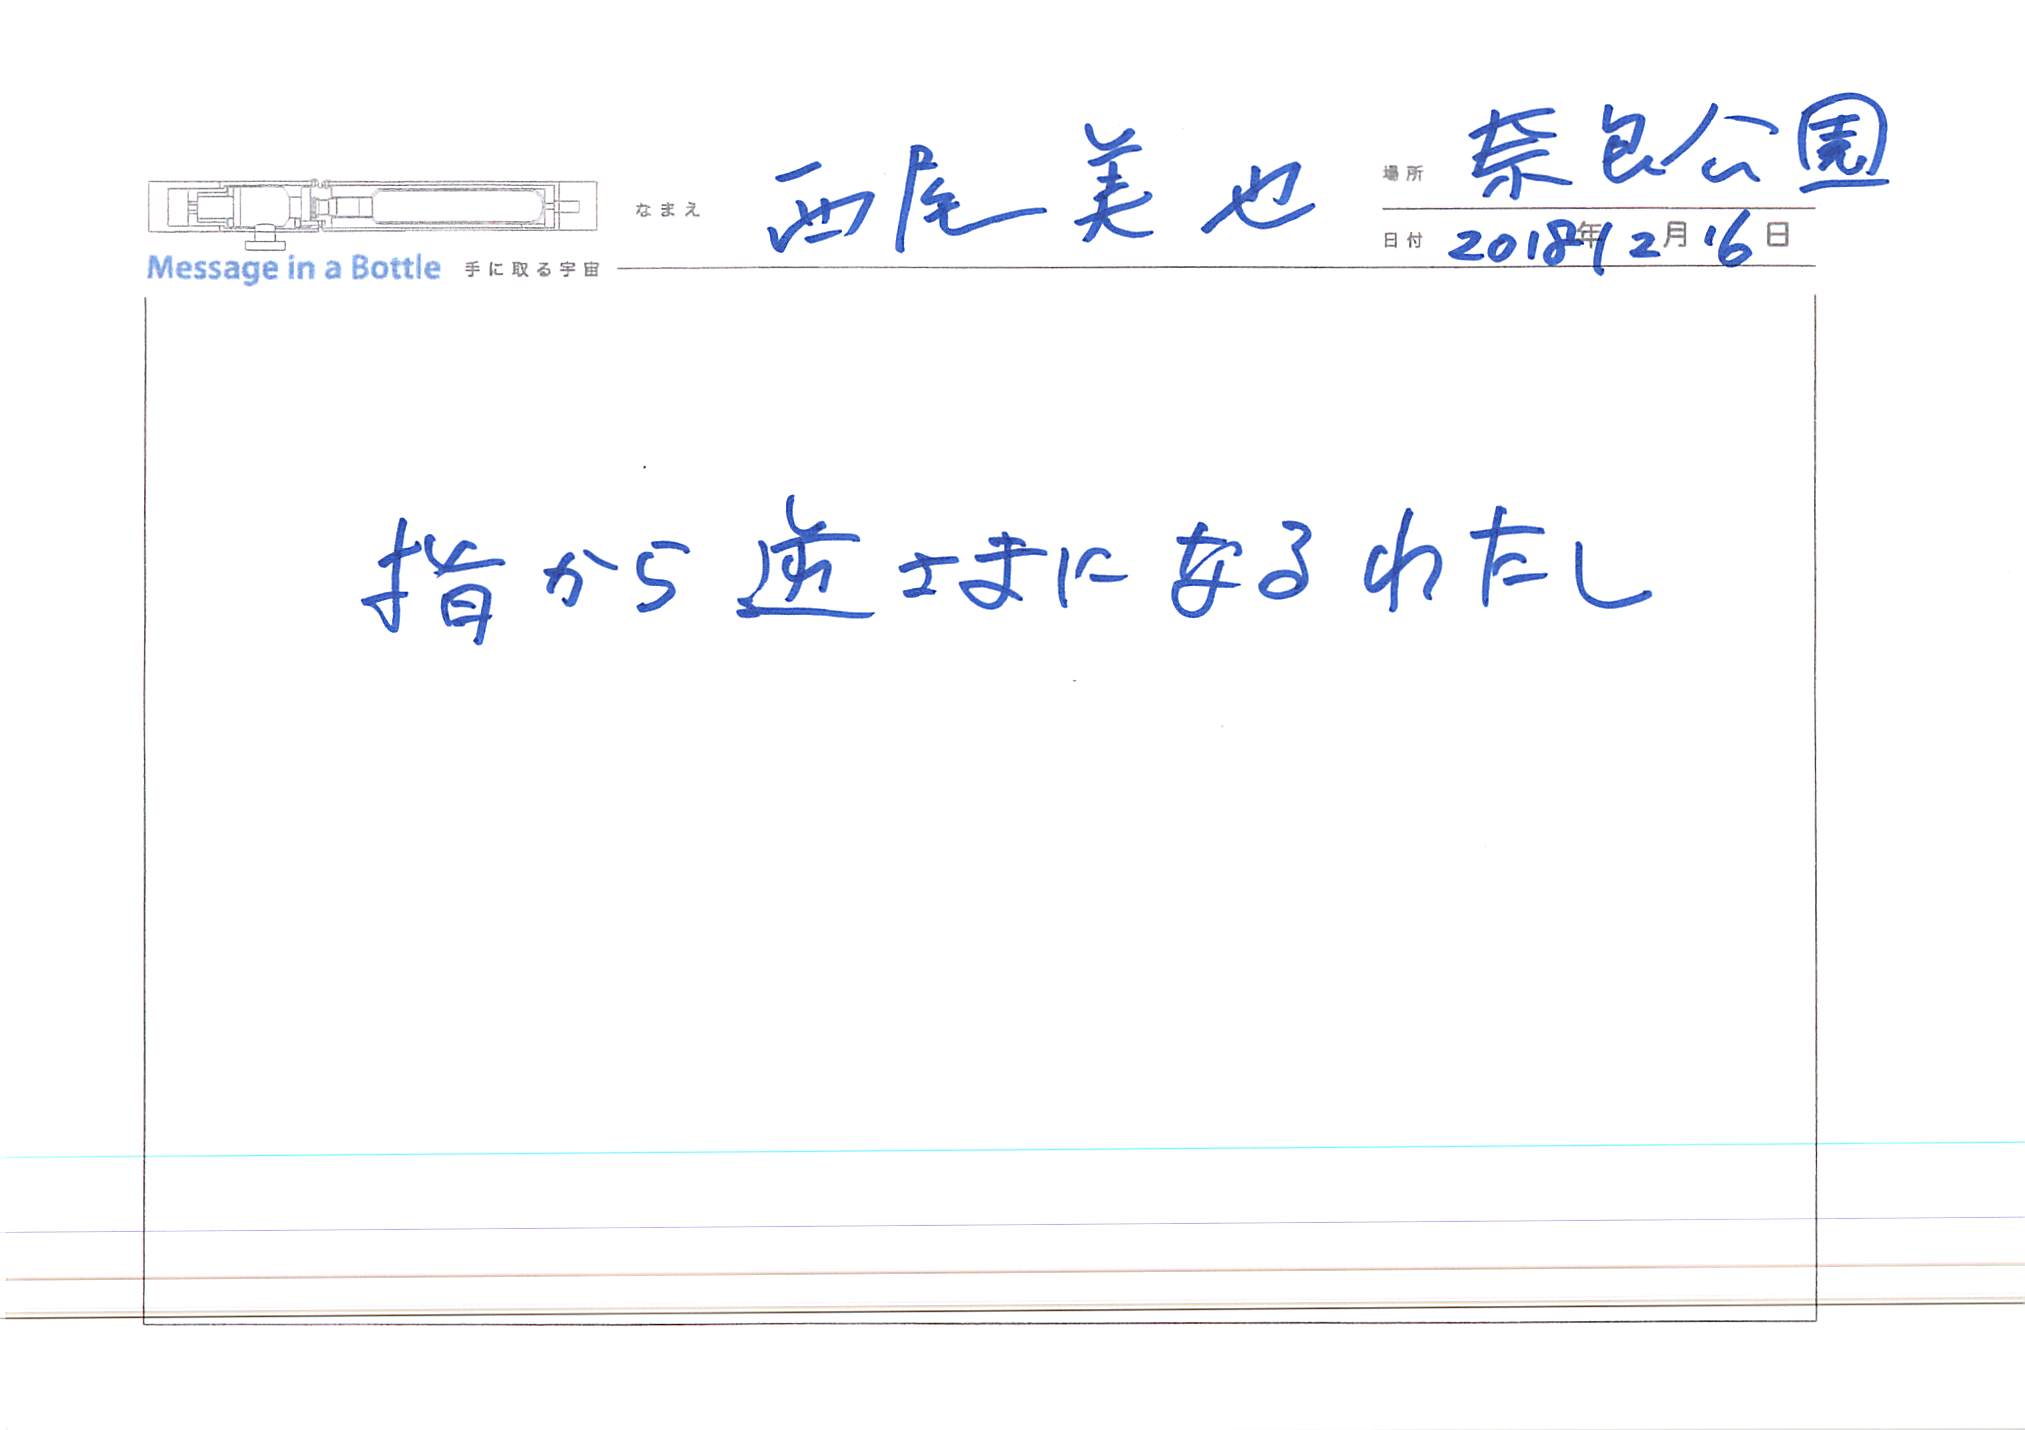 なまえ 西尾美也
場所 奈良公園
日付 2018年12月16日
Message in a Bottle 手に取る宇宙
指から逆さまになるわたし